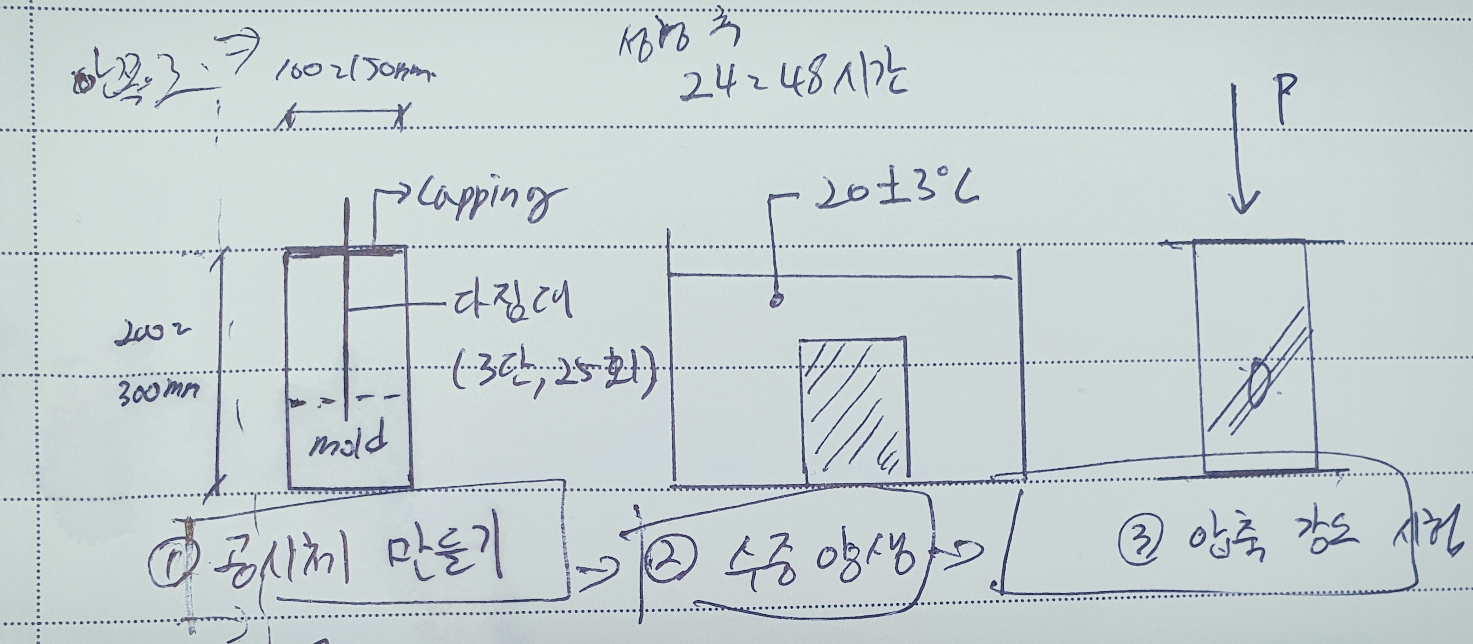 100~150mm
성형 후
24~48시간
P
capping
20±3℃
다짐대
(3단, 25회)
200~
300mm
mold
① 공시체 만들기
② 수중 양생
③ 압축 강도 시험